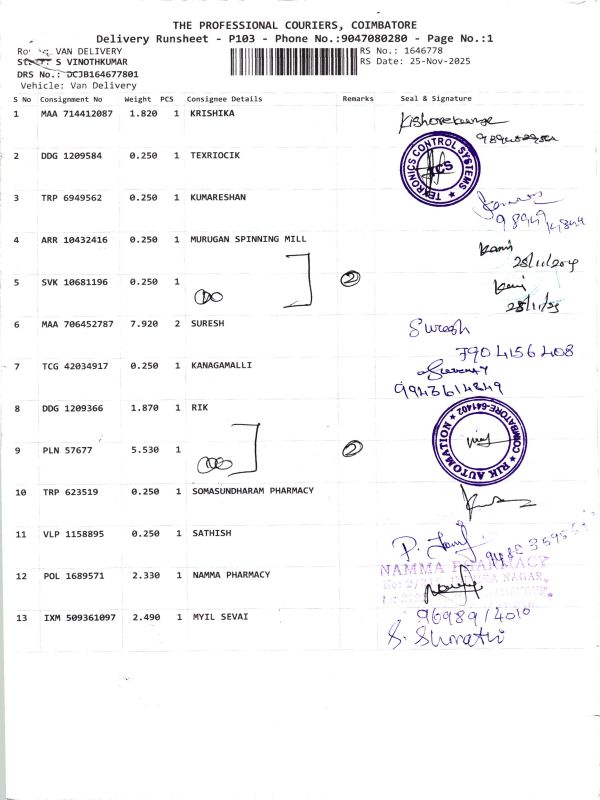 THE PROFESSIONAL COURIERS, COIMBATORE
Delivery Runsheet - P103 - Phone No.:9047080280 - Page No.:1
VAN DELIVERY RS No.: 1646778
S VINOTHKUMAR RS Date: 25-Nov-2025
DRS No.: DCJB164677801
Vehicle: Van Delivery
S No Consignment No Weight PCS Consignee Details Remarks Seal & Signature
1 MAA 714412087 1.820 1 KRISHIKA
2 DDG 1209584 0.250 1 TEXRIOCIK
TEKRONICS CONTROL SYSTEMS
TCS
3 TRP 6949562 0.250 1 KUMARESHAN
4 ARR 10432416 0.250 1 MURUGAN SPINNING MILL
5 SVK 10681196 0.250 1 2
6 MAA 706452787 7.920 2 SURESH Suresh
790 4156 408
7 TCG 42034917 0.250 1 KANAGAMALLI
9943614849
8 DDG 1209366 1.870 1 RIK
RIK AUTOMATION COIMBATORE-641402
9 PLN 57677 5.530 1 2
10 TRP 623519 0.250 1 SOMASUNDHARAM PHARMACY
11 VLP 1158895 0.250 1 SATHISH
12 POL 1689571 2.330 1 NAMMA PHARMACY NAMMA PHARMACY
NAGAR,
13 IXM 509361097 2.490 1 MYIL SEVAI 96989 14010
S. Sumathi